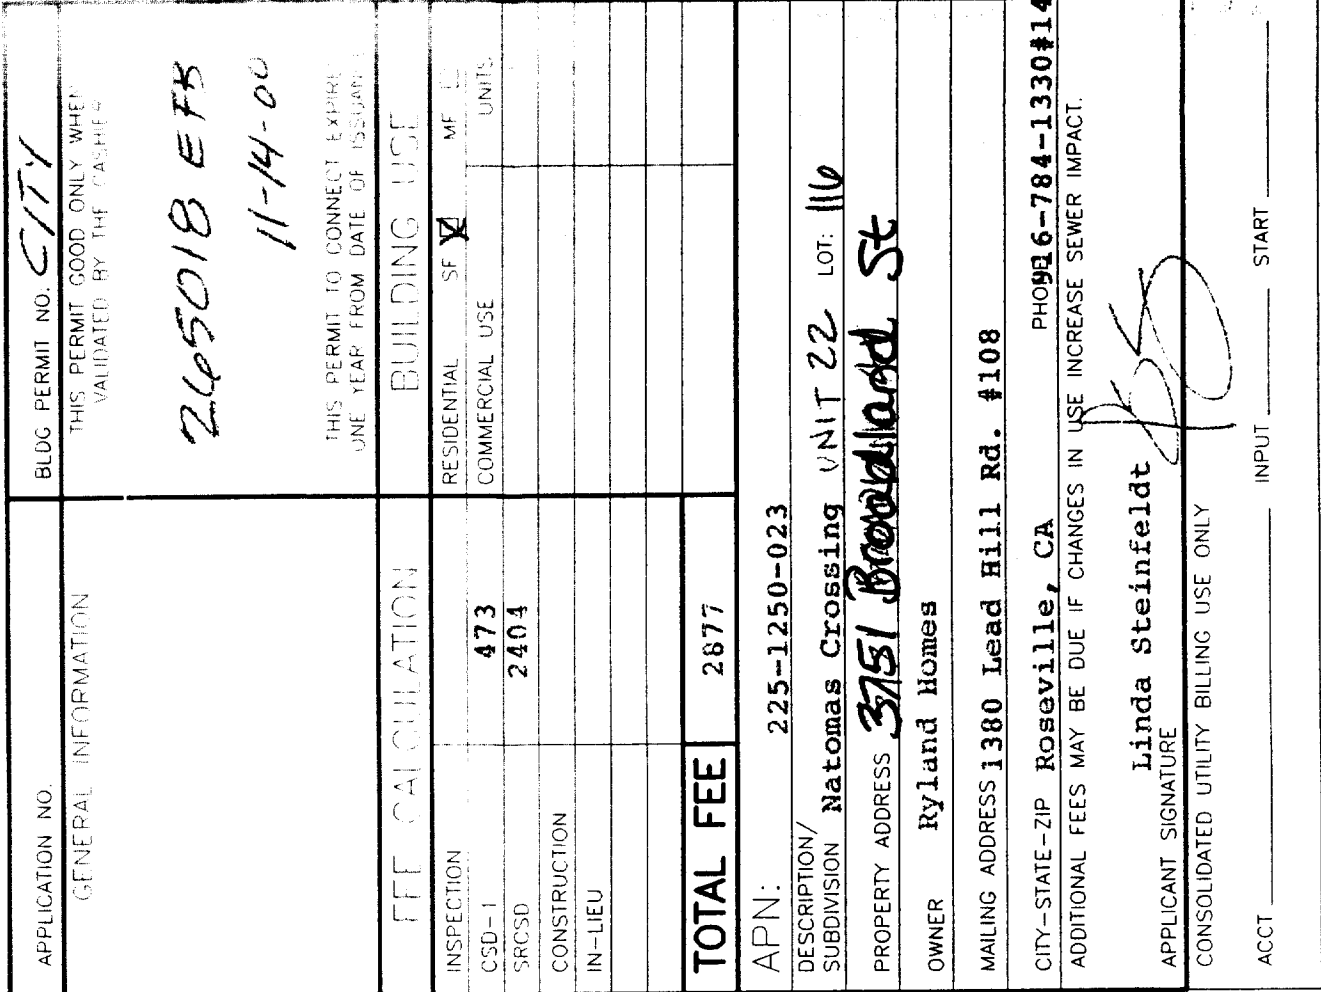 APPLICATION NO.
BLDG PERMIT NO. CITY
GENERAL INFORMATION
THIS PERMIT GOOD ONLY WHEN
VALIDATED BY THE CASHIER
265018 EFB
11-14-00
THIS PERMIT TO CONNECT EXPIRE
ONE YEAR FROM DATE OF ISSUAN
FEE CALCULATION
BUILDING USE
INSPECTION
RESIDENTIAL SF MF UNITS
CSD-1 473
COMMERCIAL USE
SRCSD 2404
CONSTRUCTION
IN-LIEU
TOTAL FEE 2877
APN: 225-1250-023
DESCRIPTION/
SUBDIVISION Natomas Crossing UNIT 22 LOT: 116
PROPERTY ADDRESS 3751 Broadland St
OWNER Ryland Homes
MAILING ADDRESS 1380 Lead Hill Rd. #108
CITY-STATE-ZIP Roseville, CA PHONE 916-784-1330#14
ADDITIONAL FEES MAY BE DUE IF CHANGES IN USE INCREASE SEWER IMPACT.
Linda Steinfeldt
APPLICANT SIGNATURE
CONSOLIDATED UTILITY BILLING USE ONLY
ACCT INPUT START